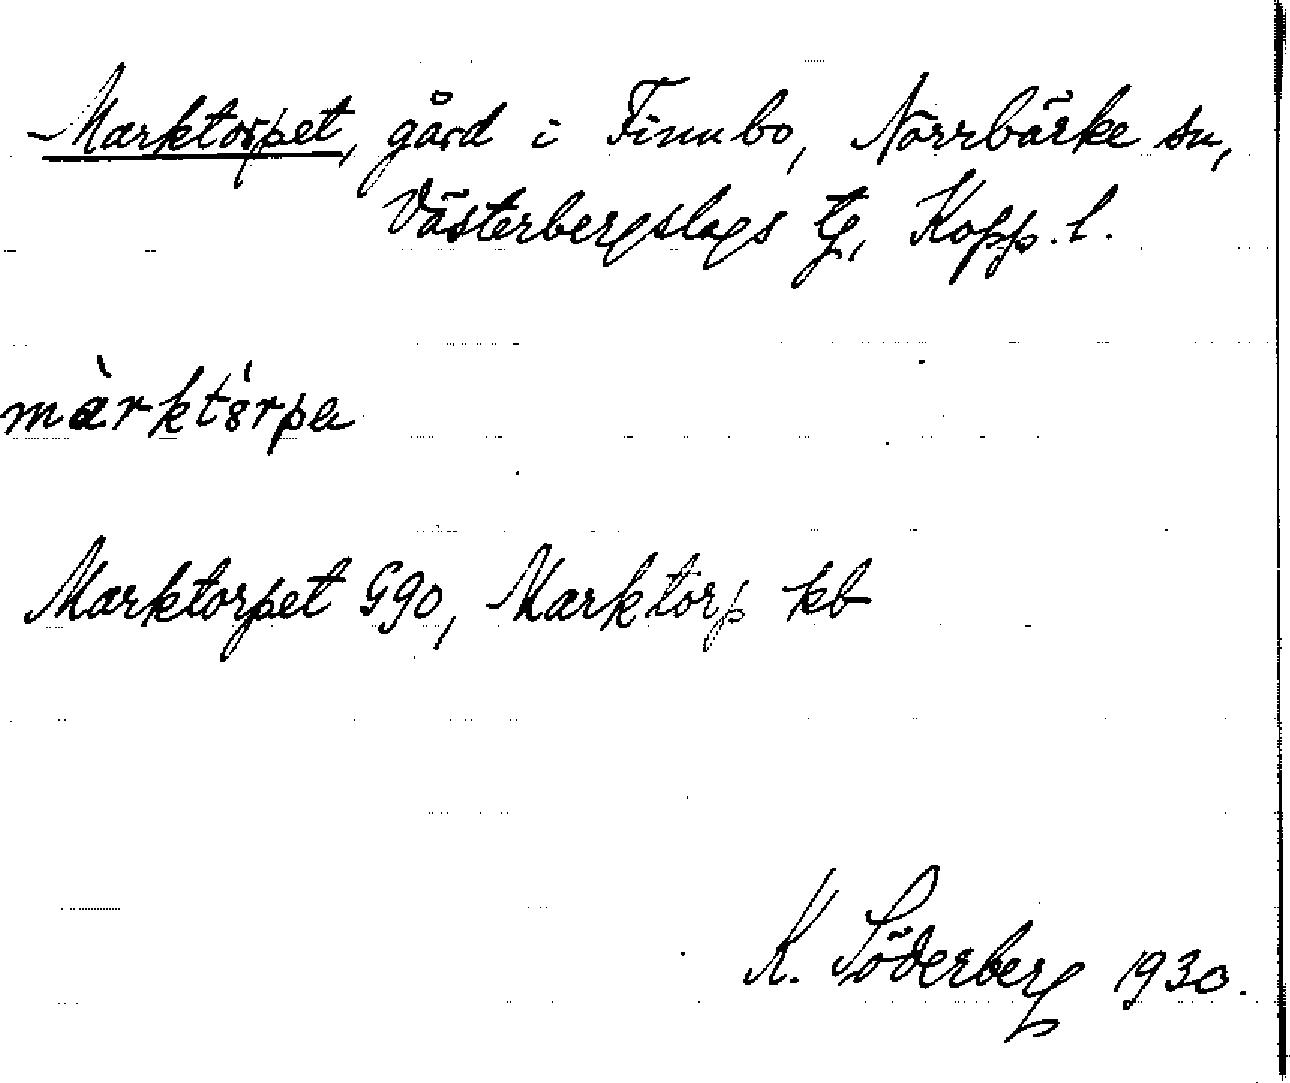 Marktorpet, gård i Finnbo, Norrbärke sn,
Västerbergslags tg, Kopp. l.
màrktórpa
Marktorpet G90, Marktorp kb
K. Söderberg 1930.